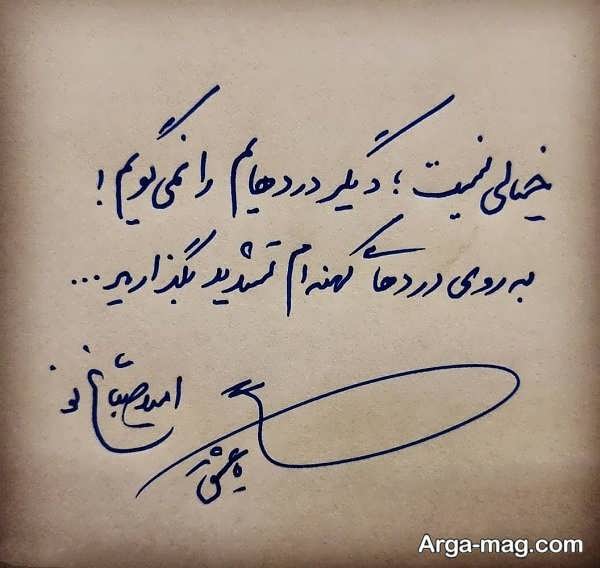 خیالی نیست ؛ دیگر دردهایم را نمی گویم !
به روی دردهای کهنه ام تشدید بگذارید ...
امید صباغ نو
یا عشق
Arga-mag.com